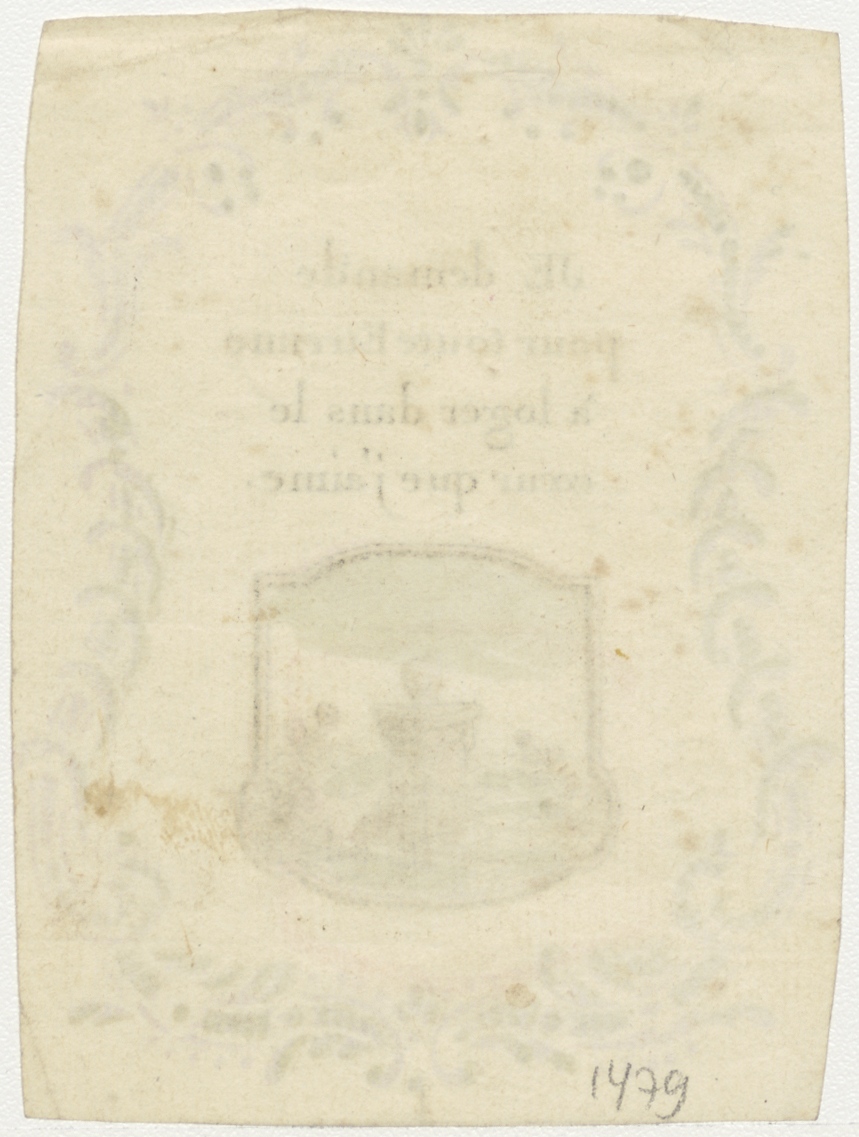 Je demande
pour toute Etrenne
à loger dans le
cœur que j'aime
1479